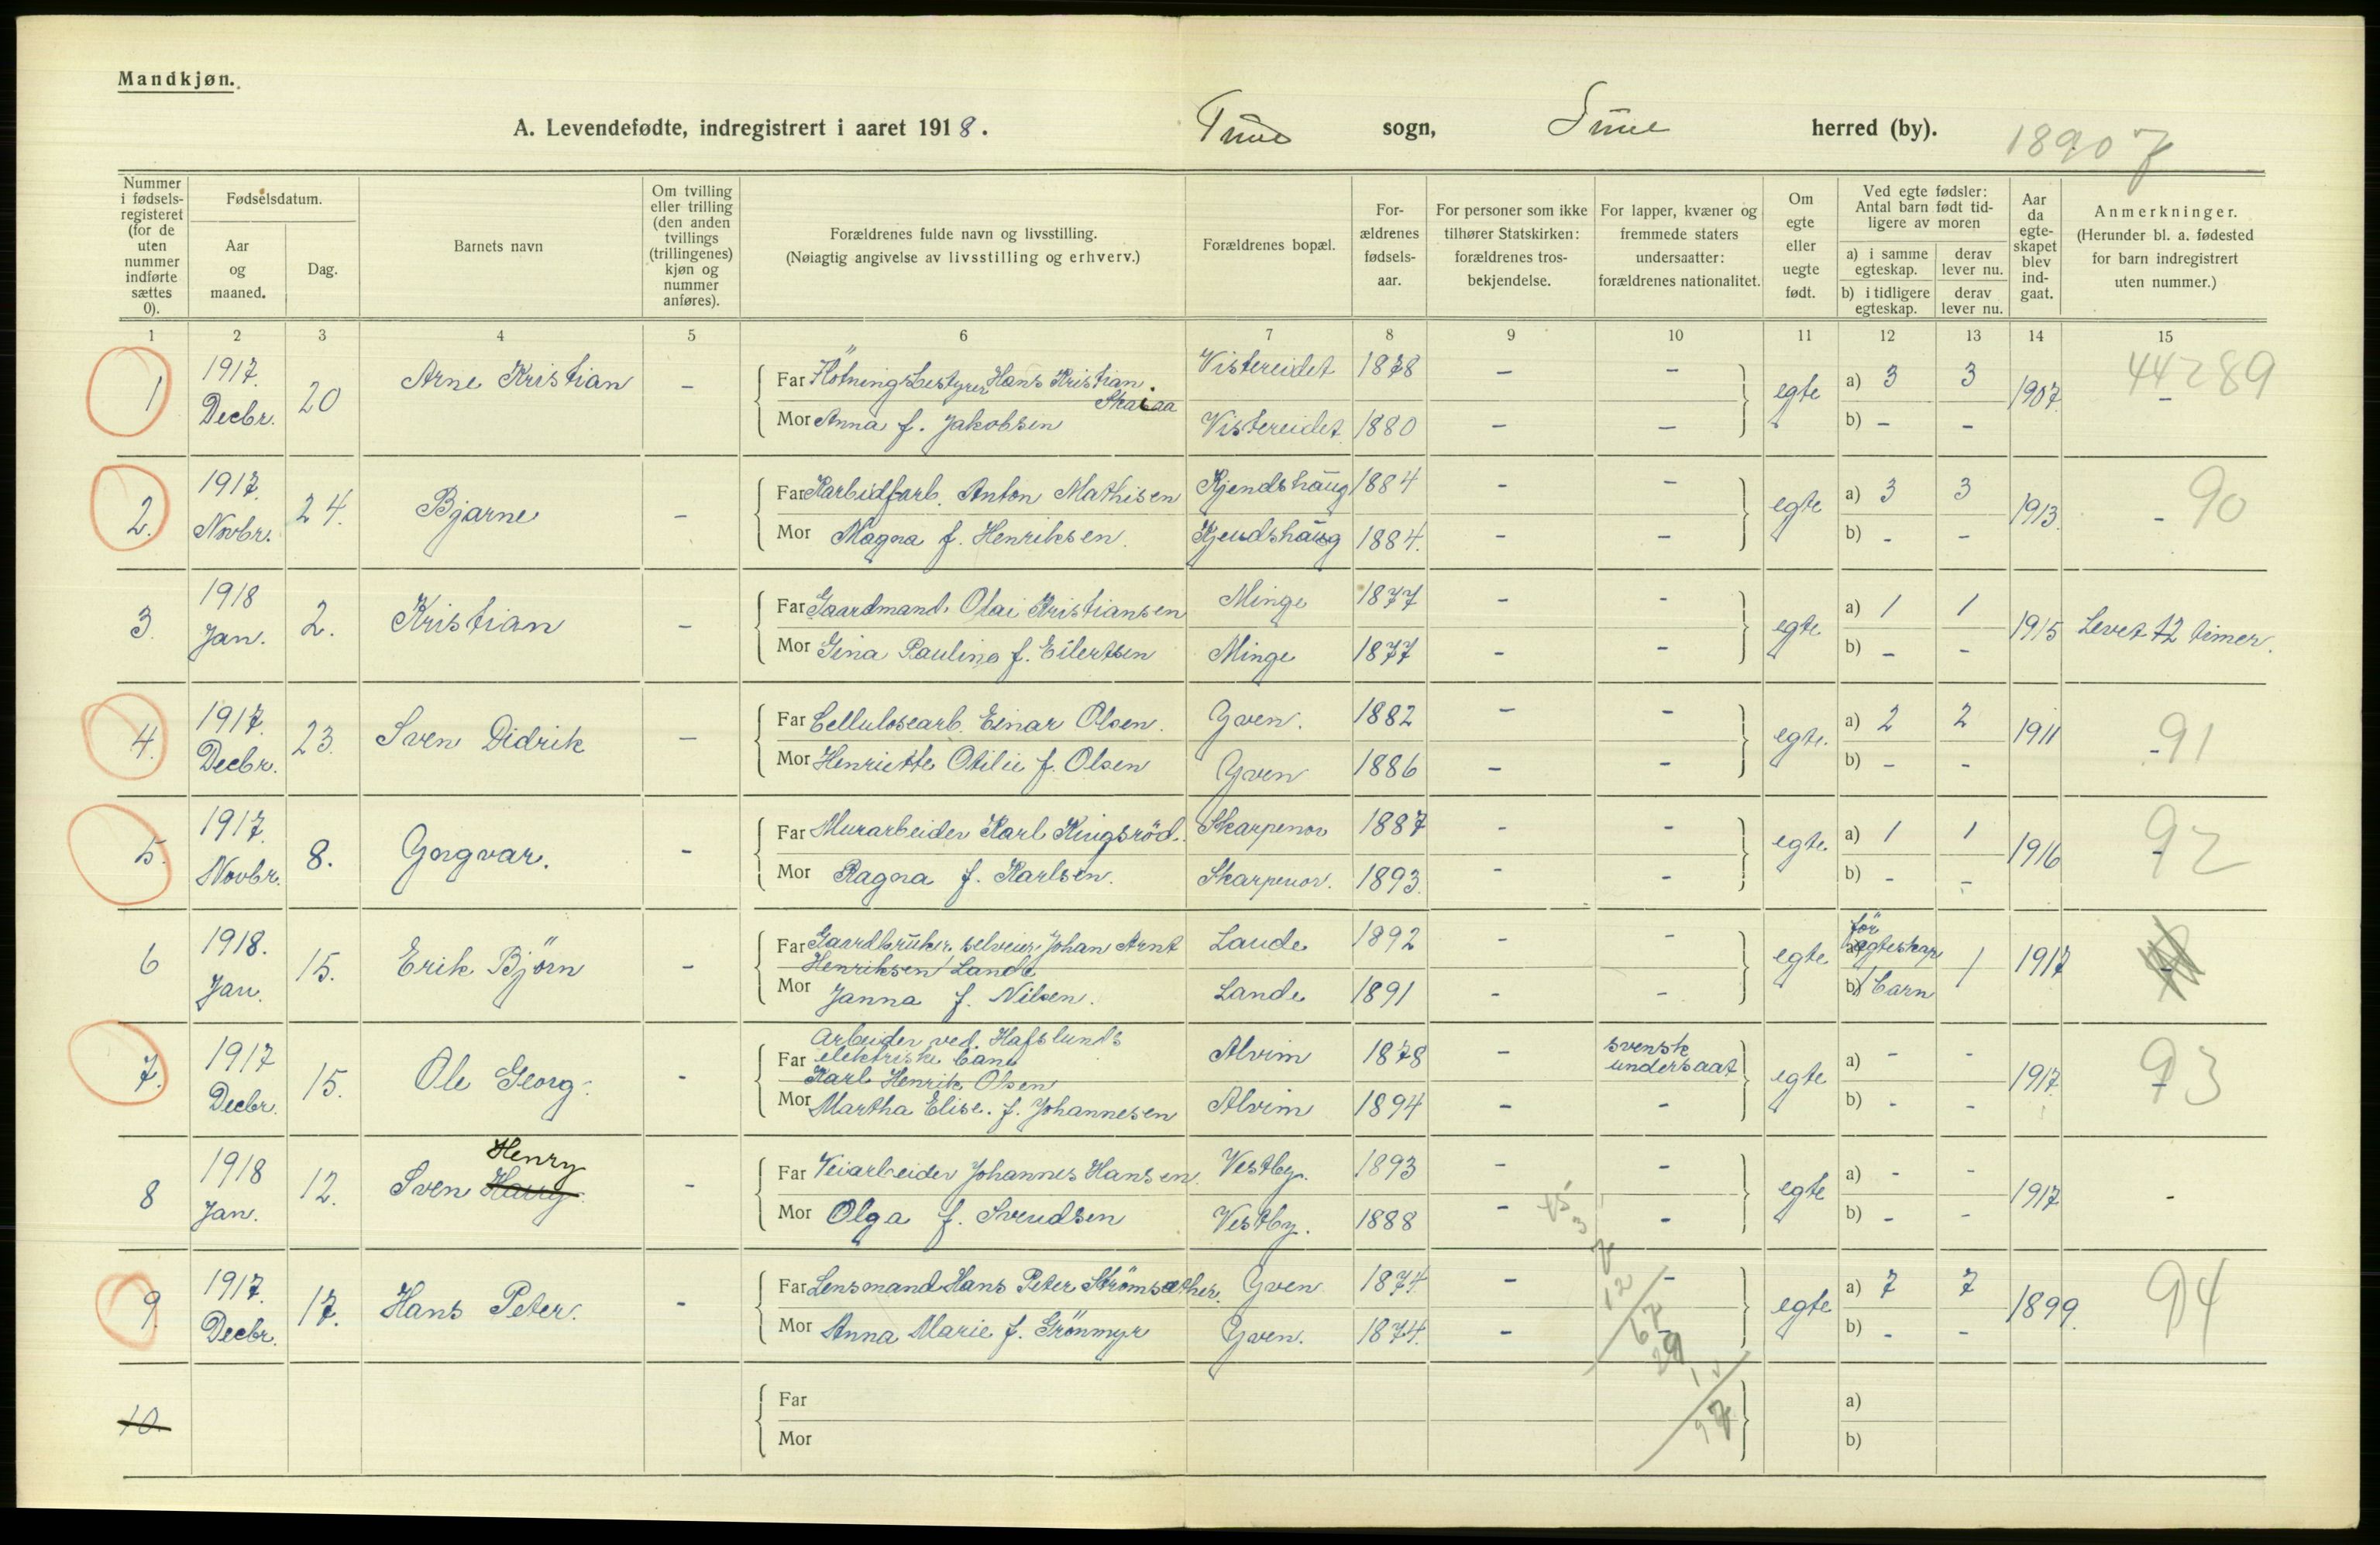 Mandkjøn.
A. Levendefødte, indregistrert i aaret 1918. Tune sogn, Tune herred (by). 18907
Nummer i fødselsregisteret (for de uten nummer indførte sættes 0).
Fødselsdatum.
Aar og maaned.
Dag.
Barnets navn
Om tvilling eller trilling (den anden tvillings (trillingenes) kjøn og nummer anføres).
Forældrenes fulde navn og livsstilling.
(Nøiagtig angivelse av livsstilling og erhverv.)
Forældrenes bopæl.
For-ældrenes fødsels-aar.
For personer som ikke tilhører Statskirken: forældrenes tros-bekjendelse.
For lapper, kvæner og fremmede staters undersaatter: forældrenes nationalitet.
Om egte eller uegte født.
Ved egte fødsler: Antal barn født tid-ligere av moren
a) i samme egteskap. derav lever nu.
b) i tidligere egteskap. derav lever nu.
Aar da egte-skapet blev ind-gaat.
Anmerkninger.
(Herunder bl. a. fødested for barn indregistrert uten nummer.)
1 2 3 4 5 6 7 8 9 10 11 12 13 14 15
1 1917. Decbr. 20 Arne Kristian - Far Flötningsbestyrer Hans Kristian Skaiaa Vistereidet 1878 - - egte a) 3 3 1907. 44289 -
Mor Anna f. Jakobsen Vistereidet 1880 - - b) - -
2. 1917. Novbr. 24. Bjarne - Far Karbidfarb. Anton Mathisen Kjendshaug 1884 - - egte a) 3 3 1913. - 90
Mor Magna f. Henriksen. Kjendshaug 1884. - - b) - -
3. 1918 Jan. 2. Kristian - Far Gaardmand. Olai Kristiansen Minge 1877 - - egte a) 1 1 1915 Levet 12 timer.
Mor Gina Pauline f. Eilertsen Minge 1877 - - b) - -
4. 1917. Decbr. 23. Sven Didrik - Far Cellulosearb. Einar Olsen. Yven. 1882 - - egte. a) 2 2 1911 - 91
Mor Henriette Otilie f. Olsen Yven 1886 - - b) - -
5. 1917. Novbr. 8. Yngvar. - Far Murarbeider Karl Kingsröd. Skarpenor 1887 - - egte. a) 1 1 1916 - 92
Mor Ragna f. Karlsen. Skarpenor. 1893. - - b) - -
6 1918. Jan. 15. Erik Björn - Far Gaardbruker selveier Johan Arnt Henriksen Lande Lande 1892 - - egte a) för egteskap 1 1917
Mor Janna f. Nilsen. Lande 1891 - - b) 1 barn
7. 1917 Decbr. 15. Ole Georg. - Far Arbeider ved Hafslunds elektriske bane Karl Henrik Olsen Alvim 1878 - svensk undersaat egte a) - - 1917. - 93
Mor Martha Elise. f. Johannesen Alvim 1894 - - b) - -
8 1918 Jan. 12. Sven Harry Henry - Far Veiarbeider Johannes Hansen. Vestby. 1893 - - egte a) - - 1917. -
Mor Olga f. Svendsen Vestby. 1888 - - b) - -
9. 1917. Decbr. 17. Hans Peter. - Far Lensmand Hans Peter Strömsæther. Yven 1874. - - egte a) 7 7 1899. 94
Mor Anna Marie f. Grönmyr Yven. 1874. - - b) - -
10. Far a)
Mor b)